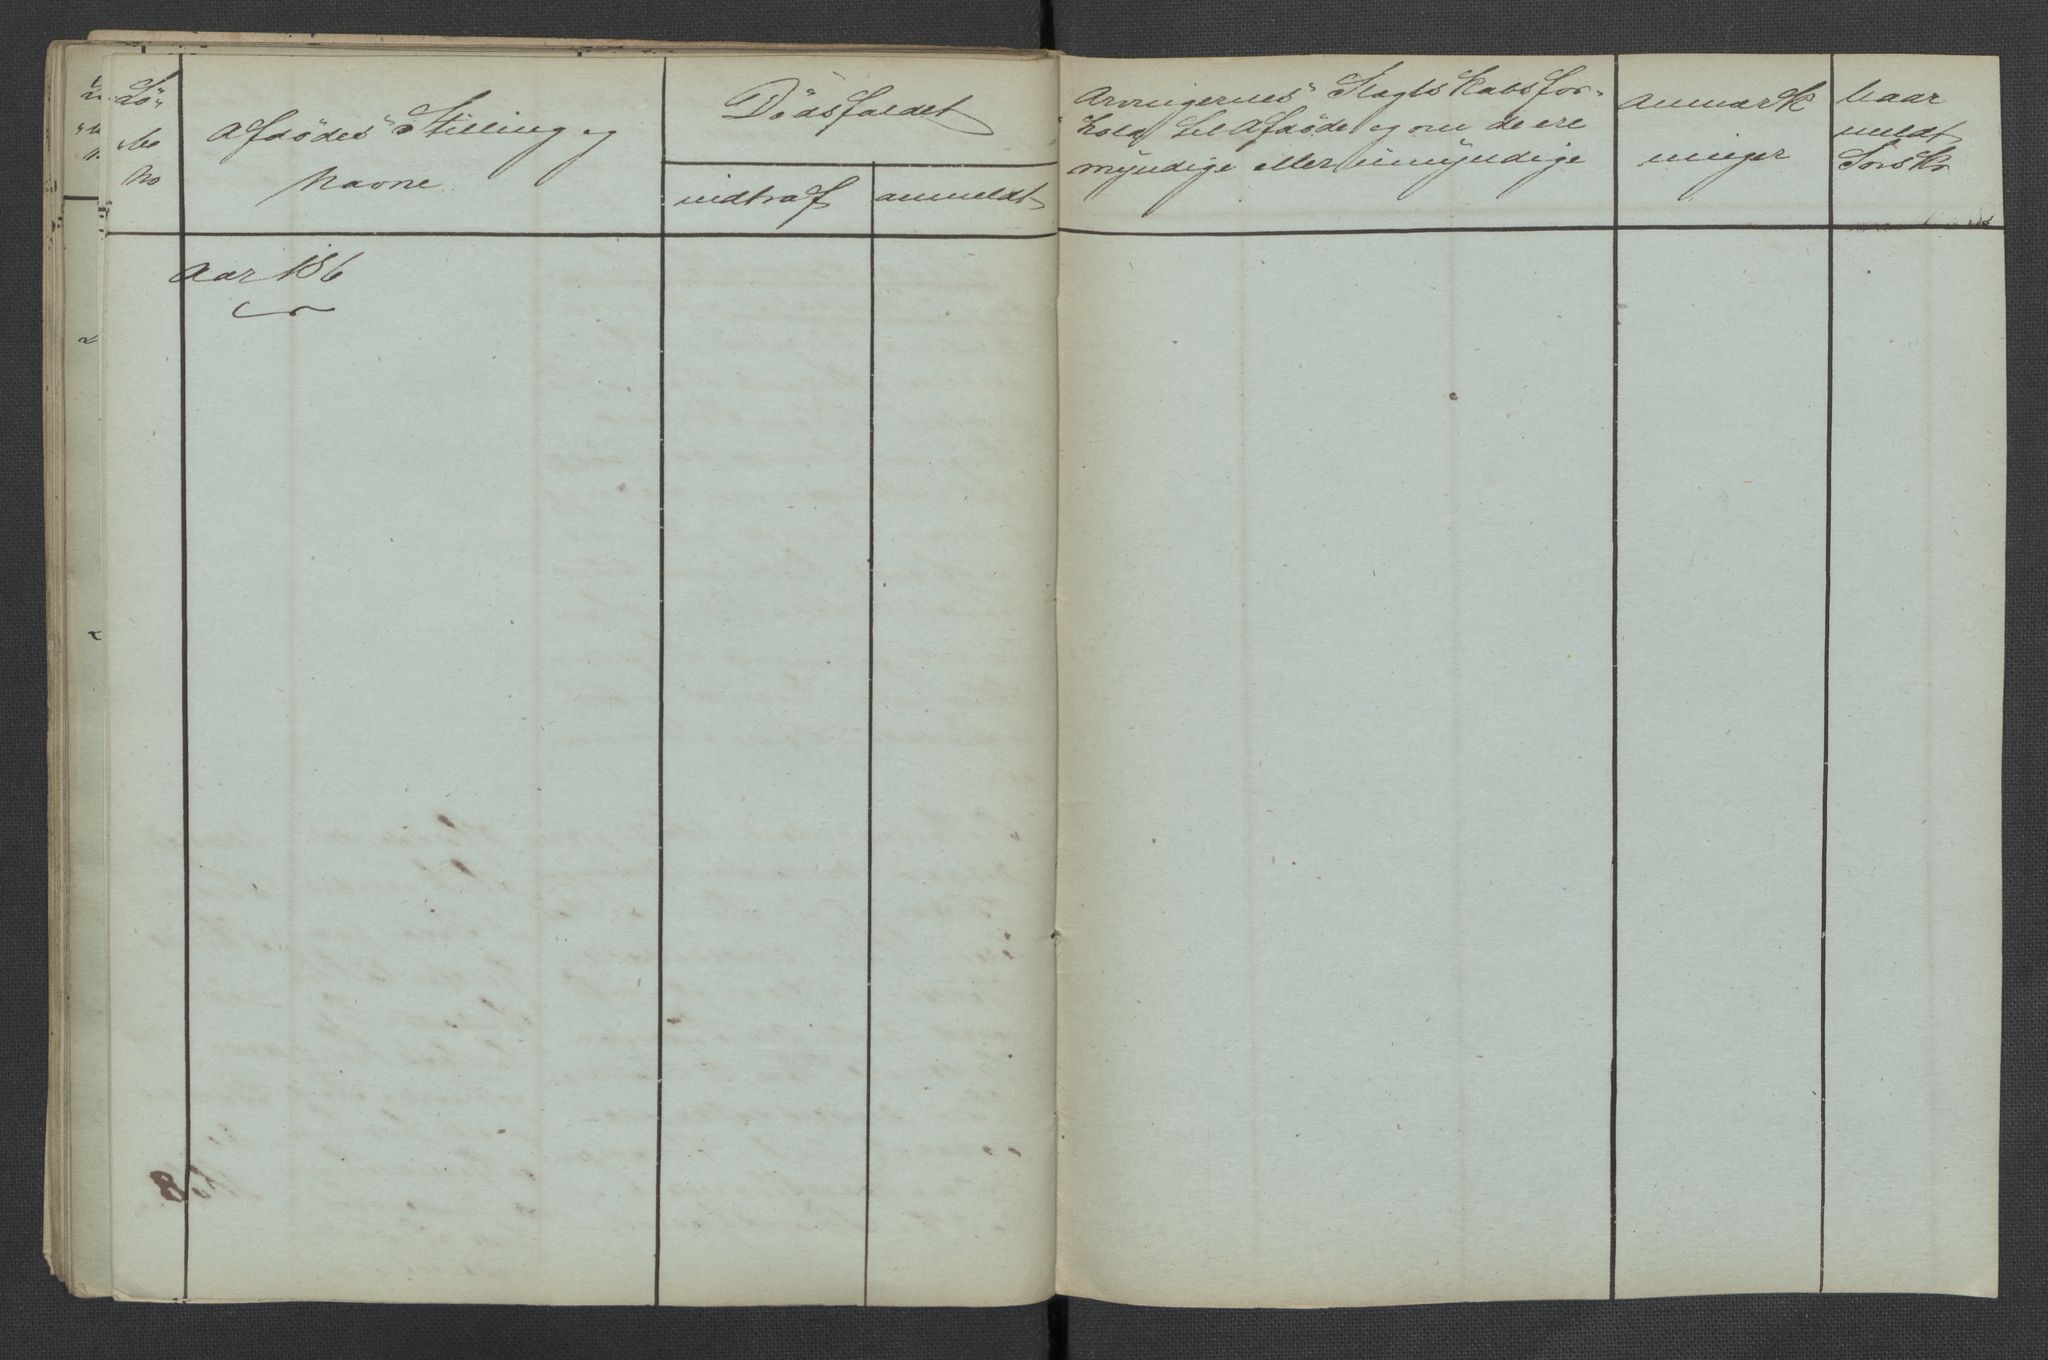 Lö-
be
No
Afdödes Stilling og
Navne.
Dödsfaldet
indtraf
anmeldt
Arvingernes Slagtskabsfor-
hold til Afdöde og om de ere
myndige eller umyndige
Anmærk
ninger
Naar
meldt
Sorskr
Aar 186